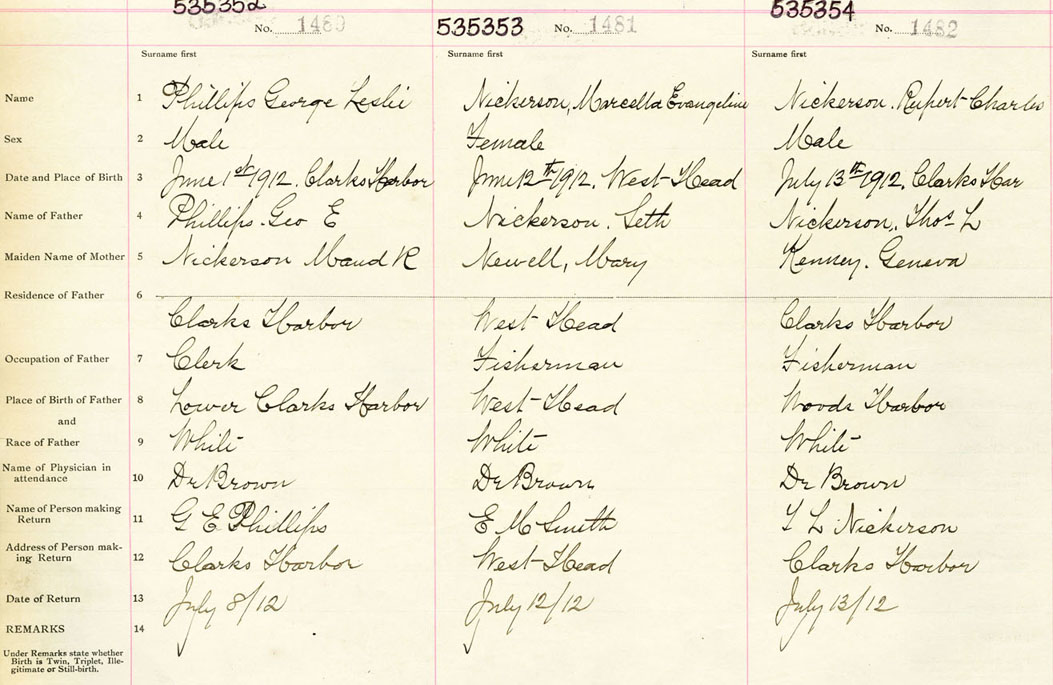 535352 535353 535354
No. 1480 No. 1481 No. 1482
Surname first Surname first Surname first
Name 1 Phillips George Leslie Nickerson, Marcella Evangeline Nickerson. Rupert Charles
Sex 2 Male Female Male
Date and Place of Birth 3 June 1st 1912. Clarks Harbor June 12th 1912. West Head July 13th 1912. Clarks Har
Name of Father 4 Phillips. Geo E Nickerson. Seth Nickerson. Thos L
Maiden Name of Mother 5 Nickerson Maud R Newell, Mary Kenney. Geneva
Residence of Father 6
Clarks Harbor West Head Clarks Harbor
Occupation of Father 7 Clerk Fisherman Fisherman
Place of Birth of Father 8 Lower Clarks Harbor West Head Woods Harbor
and
Race of Father 9 White White White
Name of Physician in
attendance 10 Dr Brown Dr Brown Dr Brown
Name of Person making
Return 11 G E Phillips E M Smith T L Nickerson
Address of Person mak-
ing Return 12 Clarks Harbor West Head Clarks Harbor
Date of Return 13 July 8/12 July 12/12 July 13/12
REMARKS 14
Under Remarks state whether
Birth is Twin, Triplet, Ille-
gitimate or Still-birth.